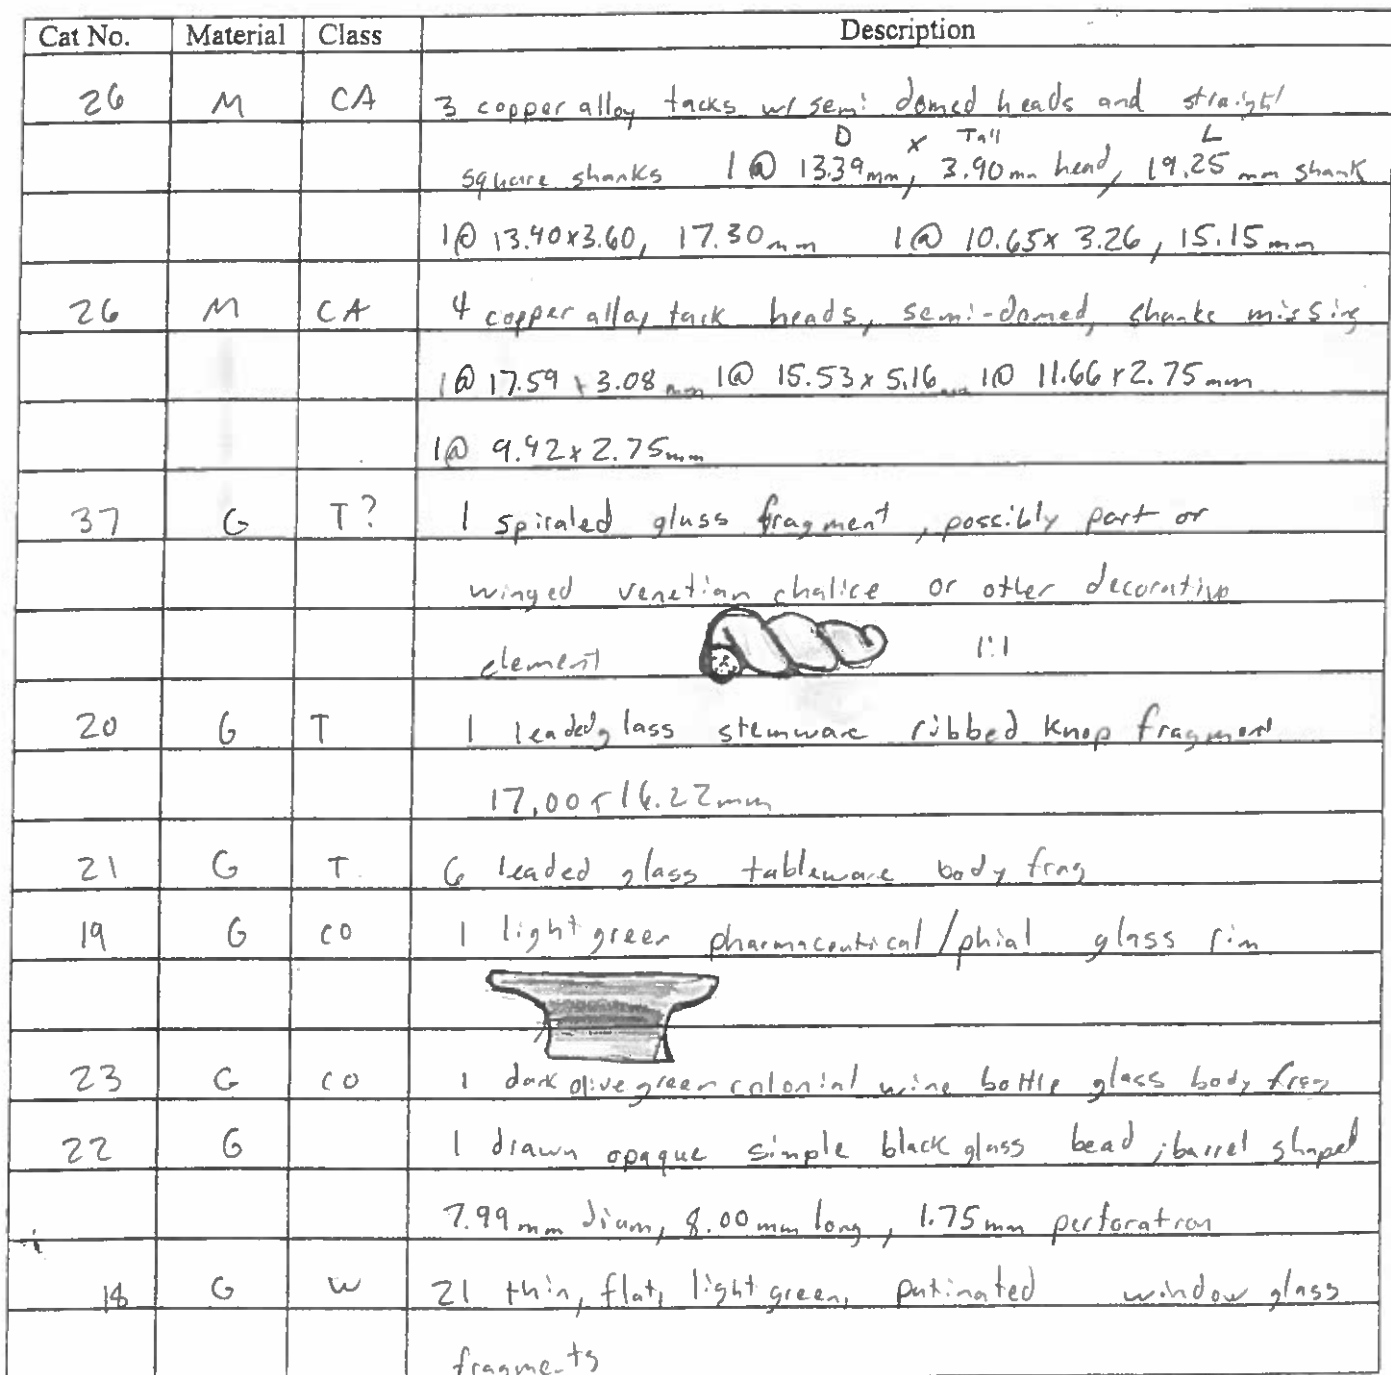 Cat No. Material Class Description
26 M CA 3 copper alloy tacks w/ semi domed heads and straight
D x Tall L
square shanks 1@ 13.39mm, 3.90mm head, 19.25 mm shank
1@ 13.40x3.60, 17.30mm 1@ 10.65x 3.26, 15.15mm
26 M CA 4 copper alloy tack heads, semi-domed, shanks missing
1@ 17.59 x 3.08 mm 1@ 15.53 x 5.16mm 1@ 11.66 x 2.75mm
1@ 9.42x2.75mm
37 G T? 1 spiraled glass fragment, possibly part or
winged venetian chalice or other decorative
element 1:1
20 G T 1 leaded glass stemware ribbed knop fragment
17.00 x 16.22mm
21 G T 6 leaded glass tableware body frag
19 G CO 1 light green pharmaceutical/phial glass rim
23 G CO 1 dark olive green colonial wine bottle glass body frag
22 G 1 drawn opaque simple black glass bead; barrel shaped
7.99mm diam, 8.00mm long, 1.75mm perforation
18 G W 21 thin, flat, light green, patinated window glass
fragments